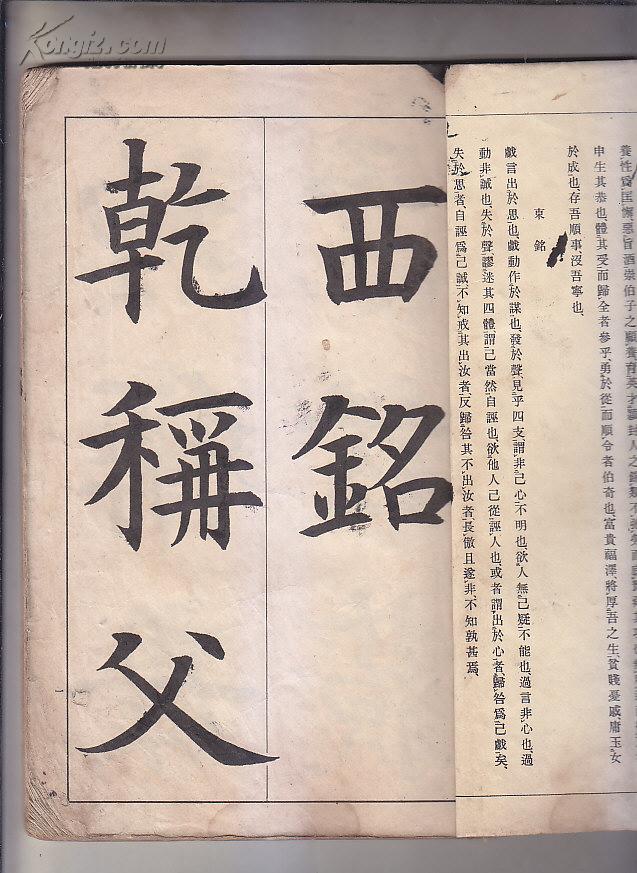 Kongfz.com
養性爲匪懈惡旨酒崇伯子之顧養育英才
申生其恭也、體其受而歸全者參乎、勇於從而順令者伯奇也、富貴福澤將厚吾之生、貧賤憂戚庸玉女
於成也、存吾順事、沒吾寧也、
東銘
戲言出於思也、戲動作於謀也、發於聲、見乎四支、謂非己心、不明也、欲人無己疑、不能也、過言非心也、過
動非誠也、失於聲、謬迷其四體、謂己當然、自誣也、欲他人己從、誣人也、或者謂出於心者、歸咎爲己戲矣、
失於思者、自誣爲己誠、不知戒其出汝者、反歸咎其不出汝者、長傲且遂非、不知孰甚焉、
西銘
乾稱父